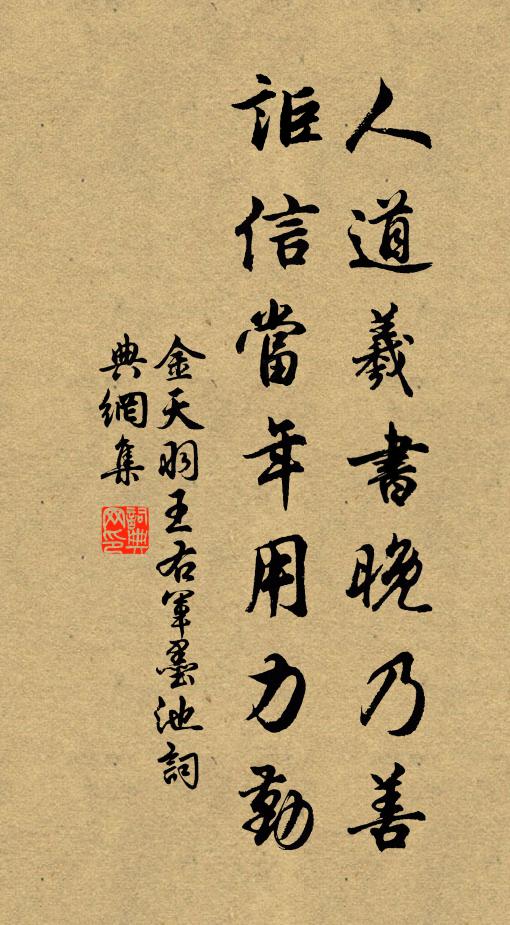 人道羲書晚乃善
詎信當年用力勤
金天羽王右軍墨池詞
典網集
詞典網印